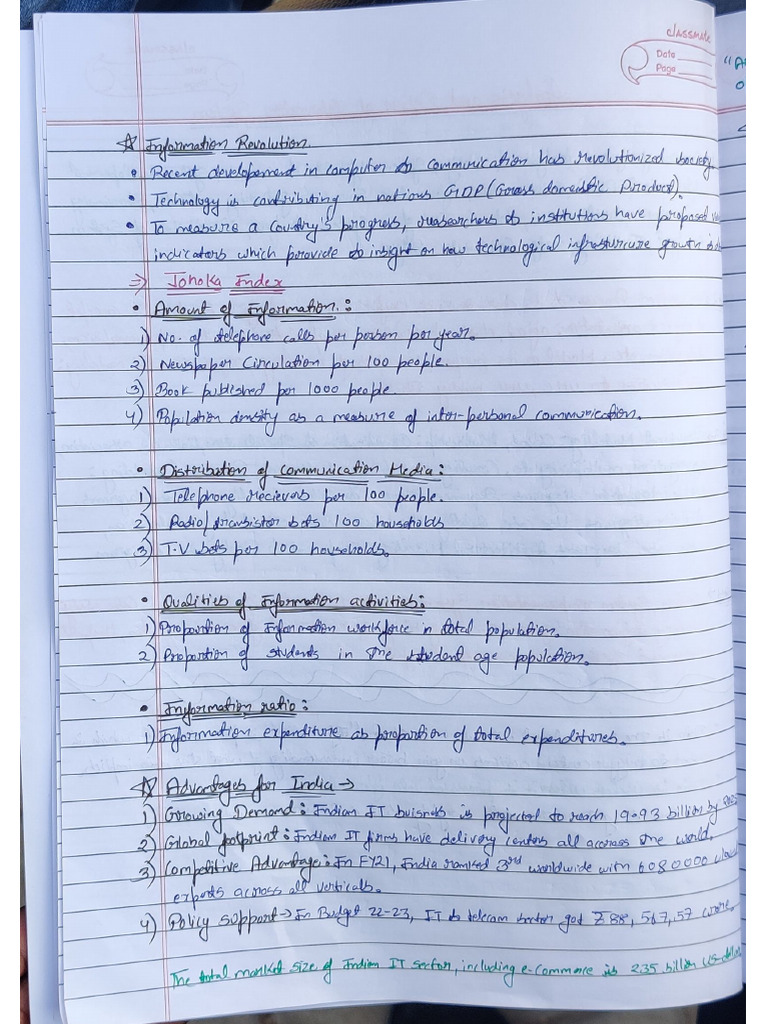 classmate
Date
Page
"A
☆ Information Revolution.
• Recent developement in computer & communication has revolutionized society.
• Technology is contributing in nations GDP (Gross domestic Product).
• To measure a Country's progress, researchers & institutions have proposed
indicators which provide & insight on how technological infrasturcure growth is
⇒ Johoka Index
• Amount of Information. :
1) No. of telephone calls per person per year.
2) Newspaper Circulation per 100 people.
3) Book published per 1000 people.
4) Population density as a measure of inter-personal communication.
• Distribution of Communication Media :
1) Telephone recievers per 100 people.
2) Radio/transistor sets 100 households
3) T.V sets per 100 households.
• Qualities of Information activities :
1) Proportion of Information workforce in total population.
2) Proportion of students in the student age population.
• Information ratio :
1) Information expenditure as proportion of total expenditures.
☆ Advantages for India →
1) Growing Demand : Indian IT buisness is projected to reach 19.93 billion by
2) Global footprint : Indian IT firms have delivery centers all across the world.
3) Competitive Advantage : In FY21, India ranked 3rd worldwide with 6080000
experts across all verticals.
4) Policy support → In Budget 22-23, IT & telecam sector got ₹88,567,57 crore.
The total market size of Indian IT sector, including e-commerce is 235 billion US